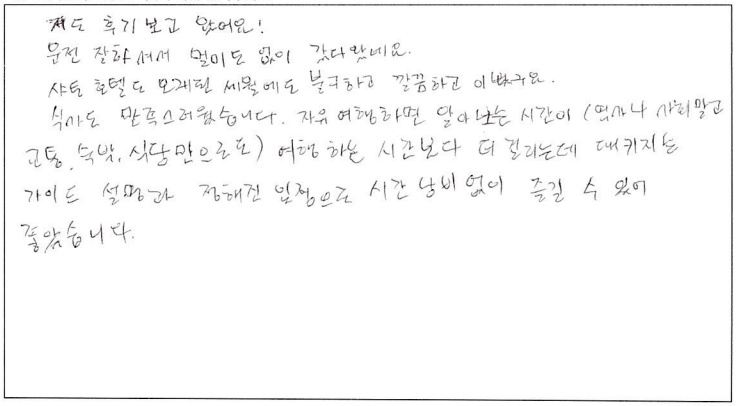 저도 후기보고 왔어요!
운전 잘하셔서 멀미도 없이 갔다왔네요.
샤토 호텔도 오래된 세월에도 불구하고 깔끔하고 이뻤구요.
식사도 만족스러웠습니다. 자유여행하면 알아보는 시간이 (역사나 사회말고
교통, 숙박, 식당만으로도) 여행하는 시간보다 더 걸리는데 패키지는
가이드 설명과 정해진 일정으로 시간낭비없이 즐길 수 있어
좋았습니다.